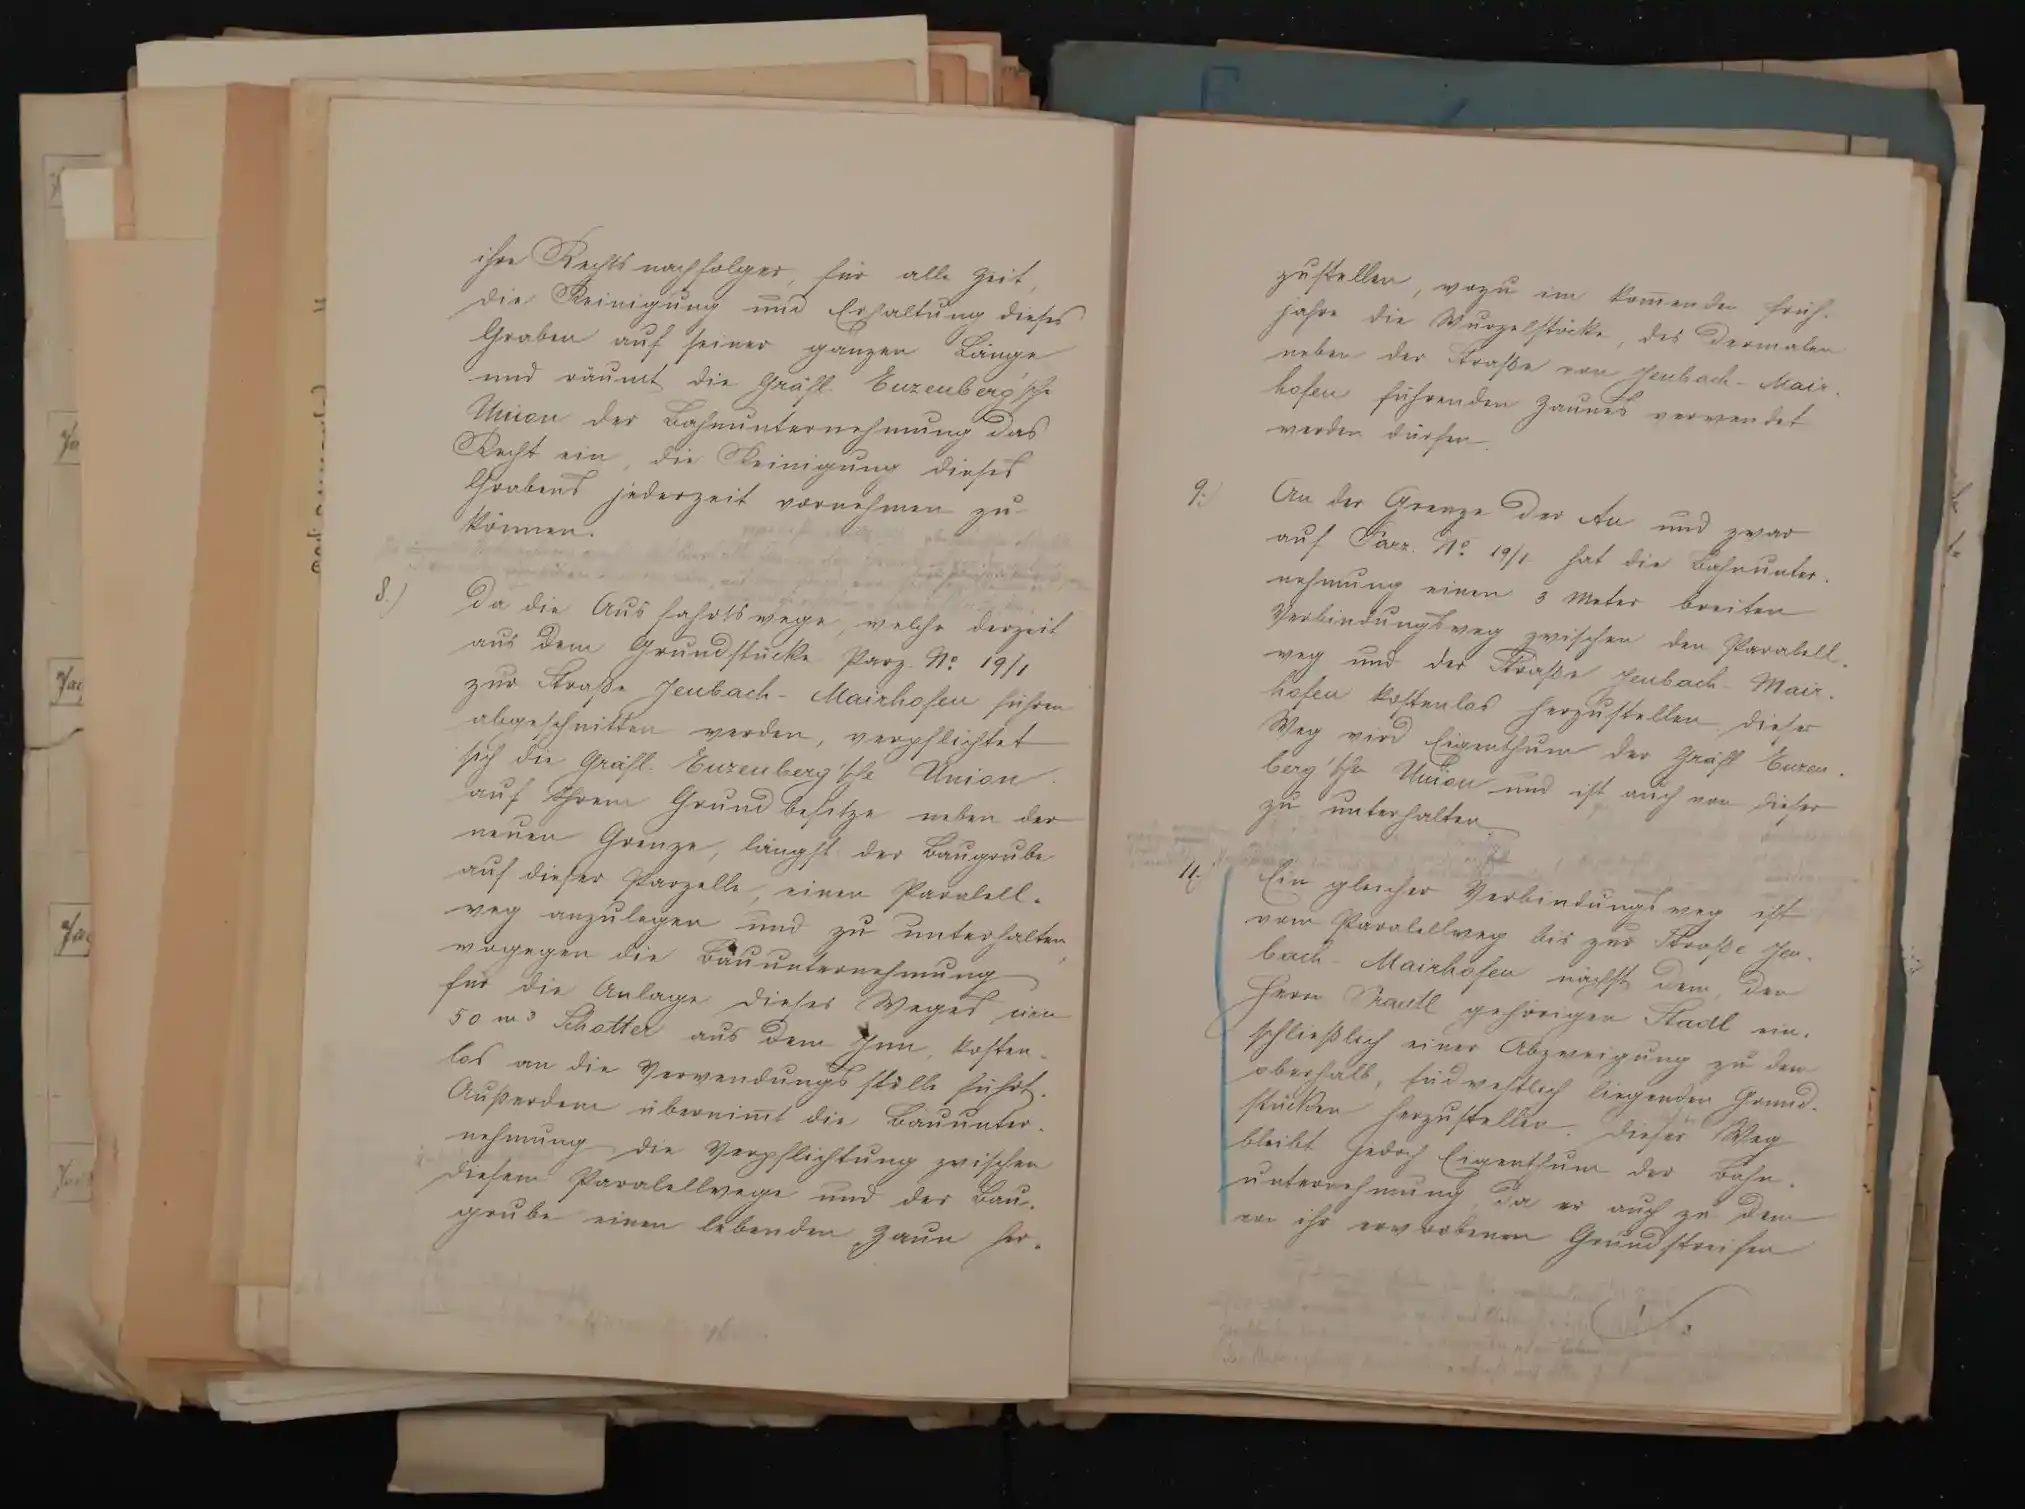 ihre Rechtsnachfolger, für alle Zeit,
die Reinigung und Erhaltung dieses
Graben auf seiner ganzen Länge
und räumt die Gräfl. Enzenberg'sche
Union der Bahnunternehmung das
Recht ein, die Reinigung dieses
Grabens jederzeit vornehmen zu
können.
8.) Da die Ausfahrtswege, welche derzeit
aus dem Grundstücke Parz. No 19/1
zur Straße Jenbach - Mairhofen führen
abgeschnitten werden, verpflichtet
sich die Gräfl. Enzenberg'sche Union
auf Ihrem Grundbesitze neben der
neuen Grenze, längst der Baugrube
auf dieser Parzelle, einen Paralell-
weg anzulegen und zu unterhalten,
wogegen die Bauunternehmung
für die Anlage dieses Weges
50 m3 Schotter aus dem Inn, kosten-
los an die Verwendungsstelle führt.
Außerdem übernimmt die Bauunter-
nehmung die Verpflichtung zwischen
diesem Paralellwege und der Bau-
grube einen lebenden Zaun her-
zustellen, wozu im kommenden Früh-
jahre die Wurzelstöcke, des dermalen
neben der Straße von Jenbach - Mair-
hofen führenden Zaunes verwendet
werden dürfen.
9.) An der Grenze der Au und zwar
auf Parz. No 19/1 hat die Bahnunter-
nehmung einen 3 Meter breiten
Verbindungsweg zwischen den Paralell-
weg und der Straße Jenbach - Mair-
hofen kostenlos herzustellen, dieser
Weg wird Eigenthum der Gräfl Enzen-
berg'sche Union und ist auch von dieser
zu unterhalten.
11.) Ein gleicher Verbindungsweg ist
vom Paralellweg bis zur Straße Jen-
bach - Mairhofen nächst dem, den
Herrn gehörigen Stadl ein-
schließlich einer Abzweigung zu den
oberhalb, südwestlich liegenden Grund-
stücken herzustellen. Dieser Weg
bleibt jedoch Eigenthum der Bahn-
unternehmung, da er auch zu dem
von ihr erworbenen Grundstreifen